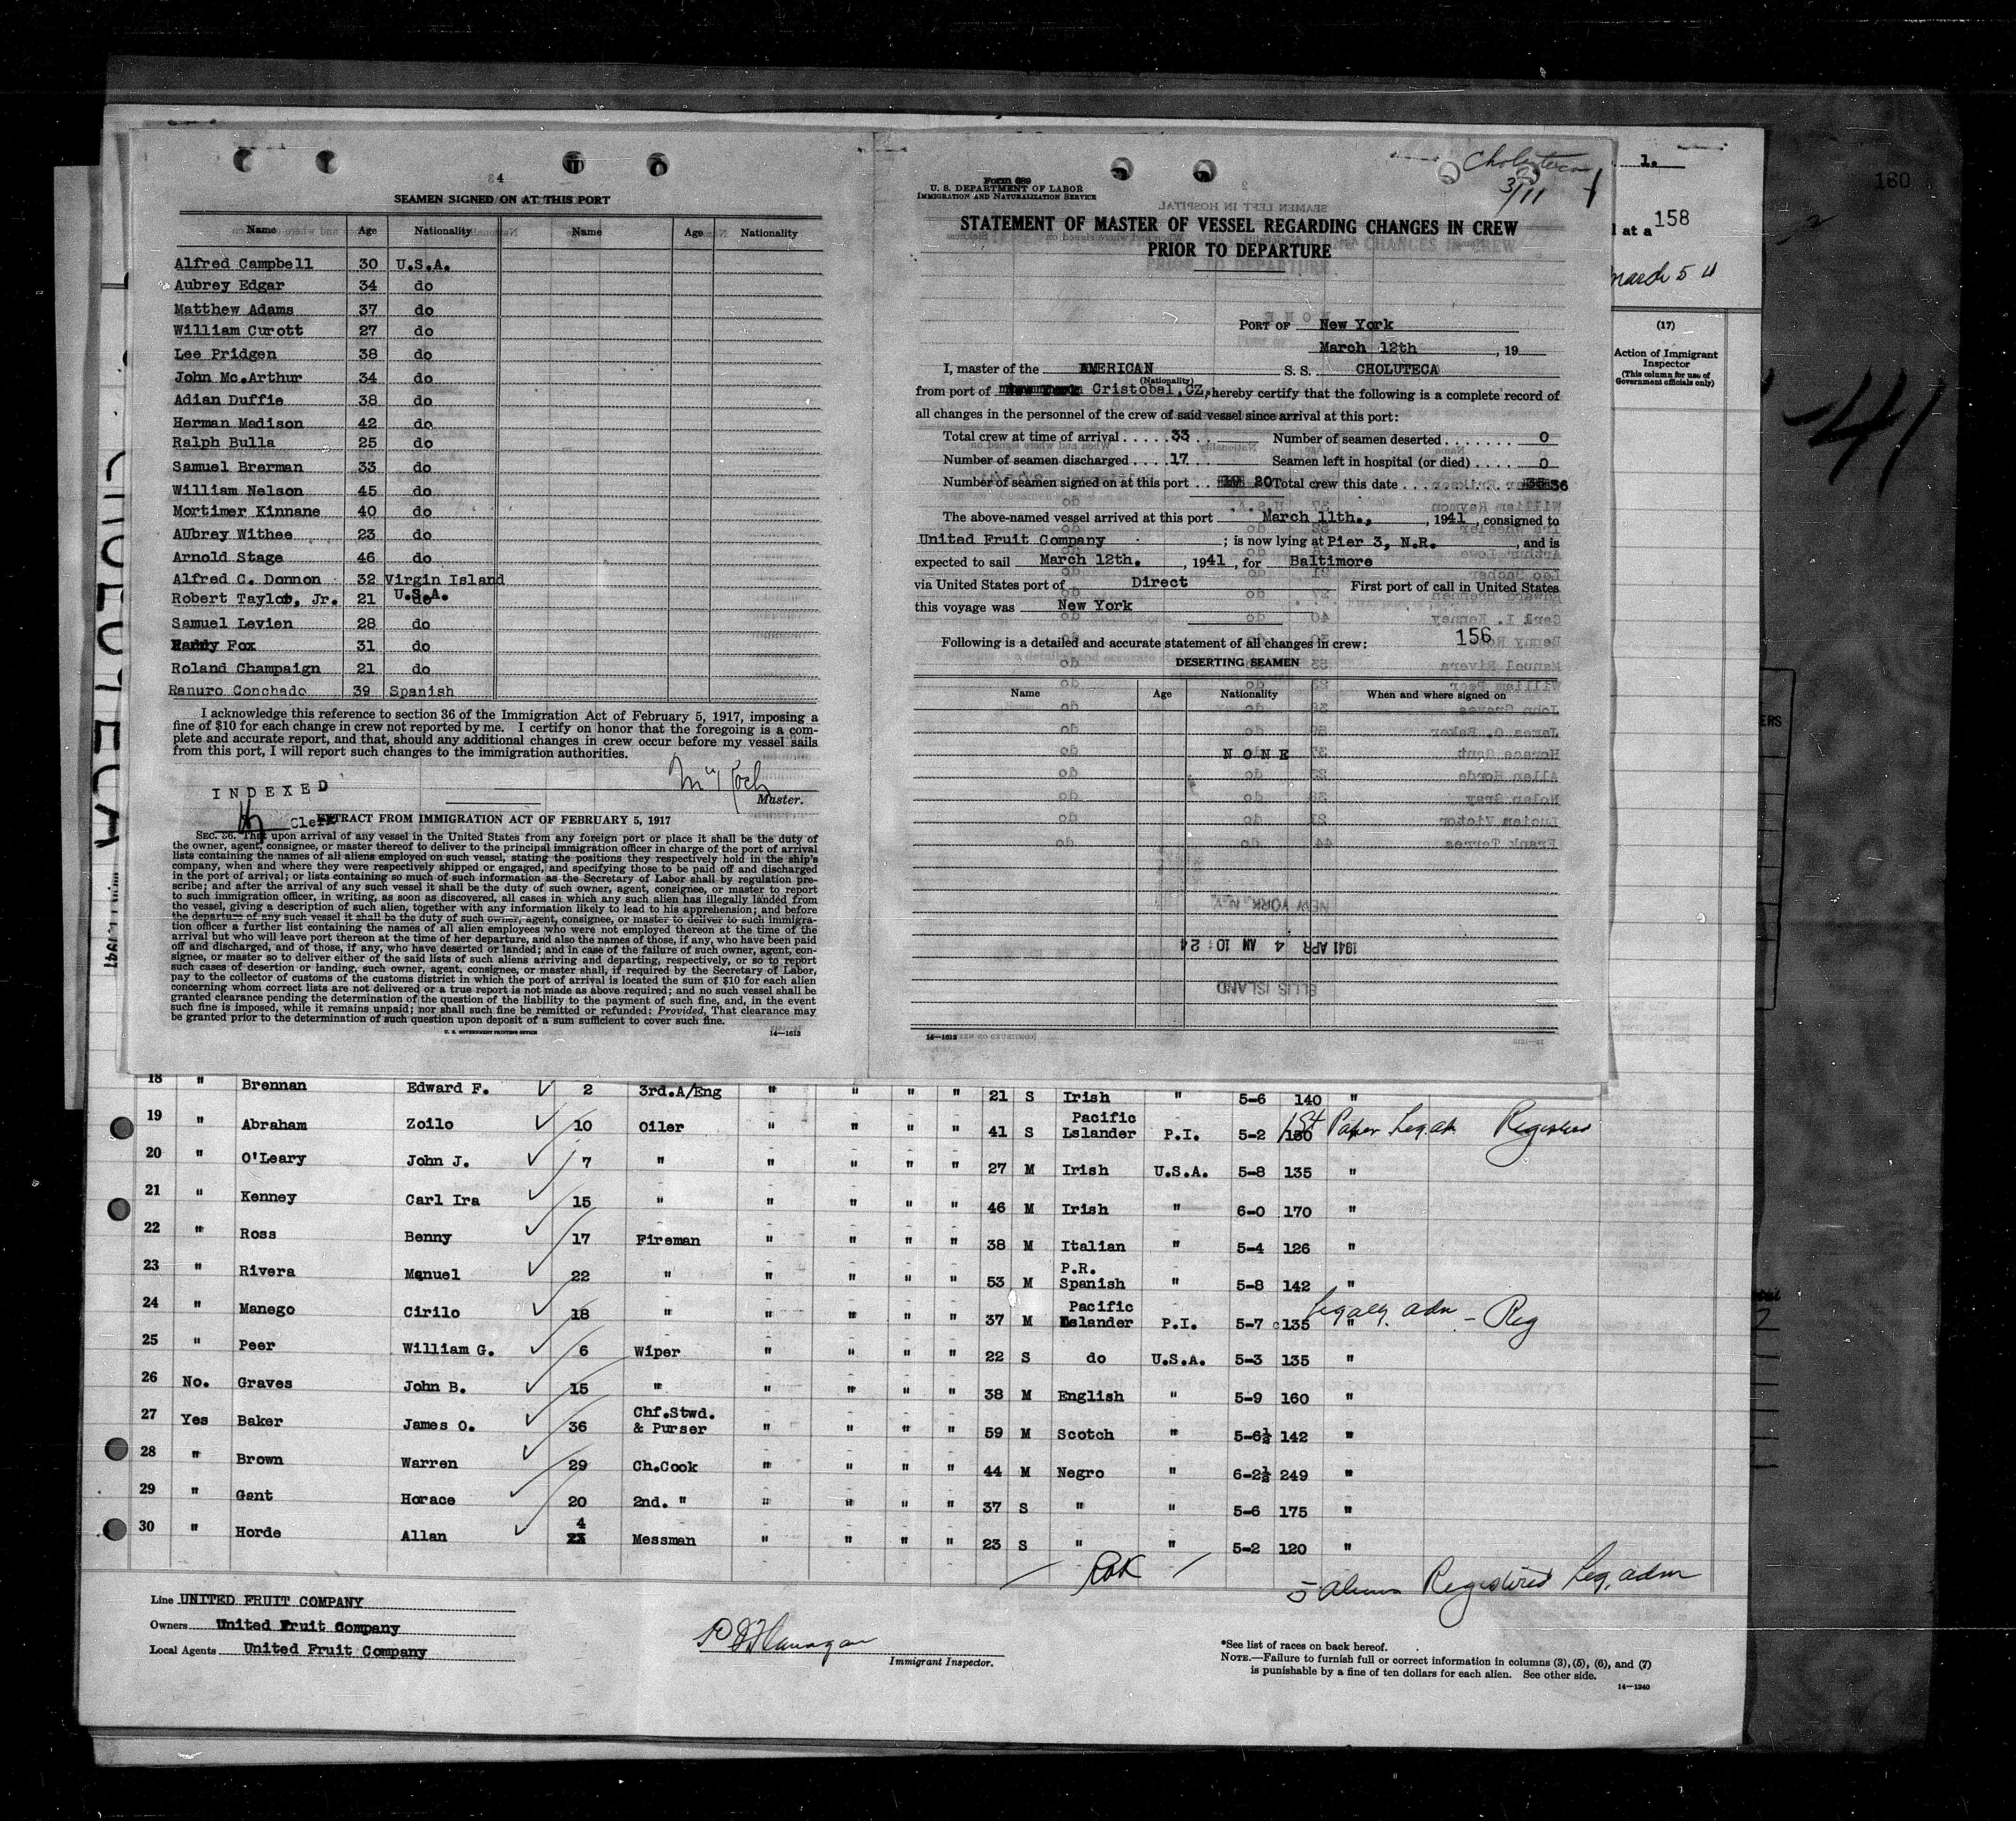 34
SEAMEN SIGNED ON AT THIS PORT
Name Age Nationality Name Age Nationality
Alfred Campbell 30 U.S.A.
Aubrey Edgar 34 do
Matthew Adams 37 do
William Curott 27 do
Lee Pridgen 38 do
John Mc.Arthur 34 do
Adian Duffie 38 do
Herman Madison 42 do
Ralph Bulla 25 do
Samuel Brerman 33 do
William Nelson 45 do
Mortimer Kinnane 40 do
AUbrey Withee 23 do
Arnold Stage 46 do
Alfred C. Donnon 32 Virgin Island
Robert Taylor, Jr. 21 U.S.A.
Samuel Levien 28 do
Fox 31 do
Roland Champaign 21 do
Ranuro Conchado 39 Spanish
I acknowledge this reference to section 36 of the Immigration Act of February 5, 1917, imposing a
fine of $10 for each change in crew not reported by me. I certify on honor that the foregoing is a com-
plete and accurate report, and that, should any additional changes in crew occur before my vessel sails
from this port, I will report such changes to the immigration authorities.
Master.
INDEXED
Clerk
EXTRACT FROM IMMIGRATION ACT OF FEBRUARY 5, 1917
SEC. 36. That upon arrival of any vessel in the United States from any foreign port or place it shall be the duty of
the owner, agent, consignee, or master thereof to deliver to the principal immigration officer in charge of the port of arrival
lists containing the names of all aliens employed on such vessel, stating the positions they respectively hold in the ship's
company, when and where they were respectively shipped or engaged, and specifying those to be paid off and discharged
in the port of arrival; or lists containing so much of such information as the Secretary of Labor shall by regulation pre-
scribe; and after the arrival of any such vessel it shall be the duty of such owner, agent, consignee, or master to report
to such immigration officer, in writing, as soon as discovered, all cases in which any such alien has illegally landed from
the vessel, giving a description of such alien, together with any information likely to lead to his apprehension; and before
the departure of any such vessel it shall be the duty of such owner, agent, consignee, or master to deliver to such immigra-
tion officer a further list containing the names of all alien employees who were not employed thereon at the time of the
arrival but who will leave port thereon at the time of her departure, and also the names of those, if any, who have been paid
off and discharged, and of those, if any, who have deserted or landed; and in case of the failure of such owner, agent, con-
signee, or master so to deliver either of the said lists of such aliens arriving and departing, respectively, or so to report
such cases of desertion or landing, such owner, agent, consignee, or master shall, if required by the Secretary of Labor,
pay to the collector of customs of the customs district in which the port of arrival is located the sum of $10 for each alien
concerning whom correct lists are not delivered or a true report is not made as above required; and no such vessel shall be
granted clearance pending the determination of the question of the liability to the payment of such fine, and, in the event
such fine is imposed, while it remains unpaid; nor shall such fine be remitted or refunded: Provided, That clearance may
be granted prior to the determination of such question upon deposit of a sum sufficient to cover such fine.
U. S. GOVERNMENT PRINTING OFFICE 14—1613
Choluteca
3/11
Form 689
U. S. DEPARTMENT OF LABOR
IMMIGRATION AND NATURALIZATION SERVICE
STATEMENT OF MASTER OF VESSEL REGARDING CHANGES IN CREW
PRIOR TO DEPARTURE
PORT OF New York
March 12th, 19
I, master of the AMERICAN S. S. CHOLUTECA
(Nationality)
from port of Cristobal, CZ, hereby certify that the following is a complete record of
all changes in the personnel of the crew of said vessel since arrival at this port:
Total crew at time of arrival 33 Number of seamen deserted 0
Number of seamen discharged 17 Seamen left in hospital (or died) 0
Number of seamen signed on at this port 20 Total crew this date 36
The above-named vessel arrived at this port March 11th., 1941, consigned to
United Fruit Company; is now lying at Pier 3, N.R., and is
expected to sail March 12th., 1941, for Baltimore
via United States port of Direct First port of call in United States
this voyage was New York
Following is a detailed and accurate statement of all changes in crew: 156
DESERTING SEAMEN
Name Age Nationality When and where signed on
NONE
1941 APR 4 AM 10:24
ELLIS ISLAND
NEW YORK, N.Y.
14—1613
1.
160
at a 158
March 5
(17)
Action of Immigrant
Inspector
(This column for use of
Government officials only)
-41
CHOLUTECA
18 " Brennan Edward F. 2 3rd.A/Eng " " " " 21 S Irish " 5-6 140 "
19 " Abraham Zoilo 10 Oiler " " " " 41 S Pacific Lslander P.I. 5-2 130 1st Paper Leg. ad. Registered
20 " O'Leary John J. 7 " " " " " 27 M Irish U.S.A. 5-8 135 "
21 " Kenney Carl Ira 15 " " " " " 46 M Irish " 6-0 170 "
22 " Ross Benny 17 Fireman " " " " 38 M Italian " 5-4 126 "
23 " Rivera Manuel 22 " " " " " 53 M P.R. Spanish " 5-8 142 "
24 " Manego Cirilo 18 " " " " " 37 M Pacific Islander P.I. 5-7 135 " Legally adm - Reg
25 " Peer William G. 6 Wiper " " " " 22 S do U.S.A. 5-3 135 "
26 No. Graves John B. 15 " " " " " 38 M English " 5-9 160 "
27 Yes Baker James O. 36 Chf.Stwd. & Purser " " " " 59 M Scotch " 5-6½ 142 "
28 " Brown Warren 29 Ch.Cook " " " " 44 M Negro " 6-2½ 249 "
29 " Gant Horace 20 2nd. " " " " " 37 S " " 5-6 175 "
30 " Horde Allan 4 Messman " " " " 23 S " " 5-2 120 "
5 aliens Registered Leg. adm
Line UNITED FRUIT COMPANY
Owners United Fruit Company
Local Agents United Fruit Company
Immigrant Inspector.
*See list of races on back hereof.
NOTE.—Failure to furnish full or correct information in columns (3), (5), (6), and (7)
is punishable by a fine of ten dollars for each alien. See other side.
14—1240